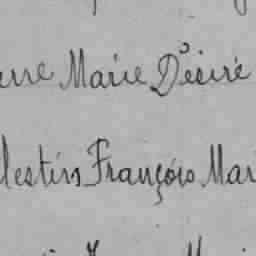 erre Marie Désiré
lestin François Mari